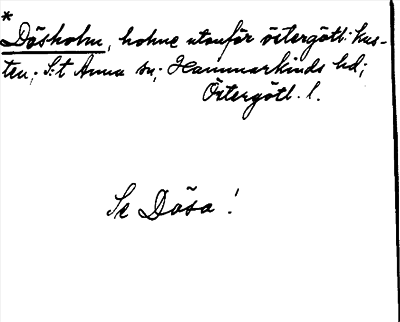 *
Dösholm, holme utanför östergötl. kus-
ten; S:t Anna sn; Hammarkinds hd;
Östergötl. l.
Se Dösa!